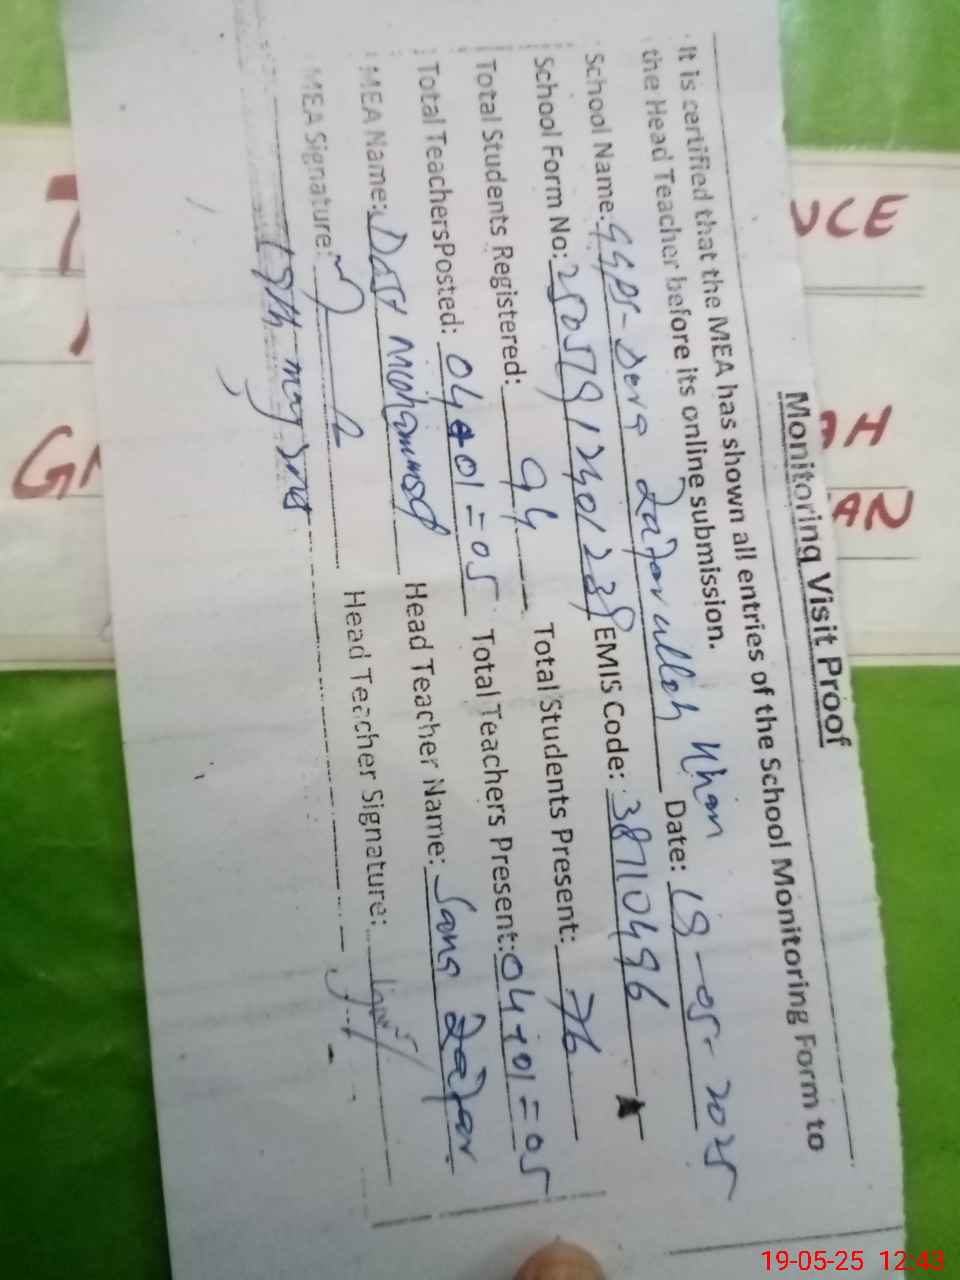 Monitoring Visit Proof
It is certified that the MEA has shown all entries of the School Monitoring Form to
the Head Teacher before its online submission.
School Name: GGPS-Dera Zafarullah Khan Date: 19-05-2025
School Form No: 25051912301239 EMIS Code: 38710496
Total Students Registered: 94 Total Students Present: 76
Total TeachersPosted: 04+01=05 Total Teachers Present: 04+01=05
MEA Name: Dost Mohammad Head Teacher Name: Sana Zafar
MEA Signature: Head Teacher Signature:
19th may
UCE
AH
AN
G
19-05-25 12:43